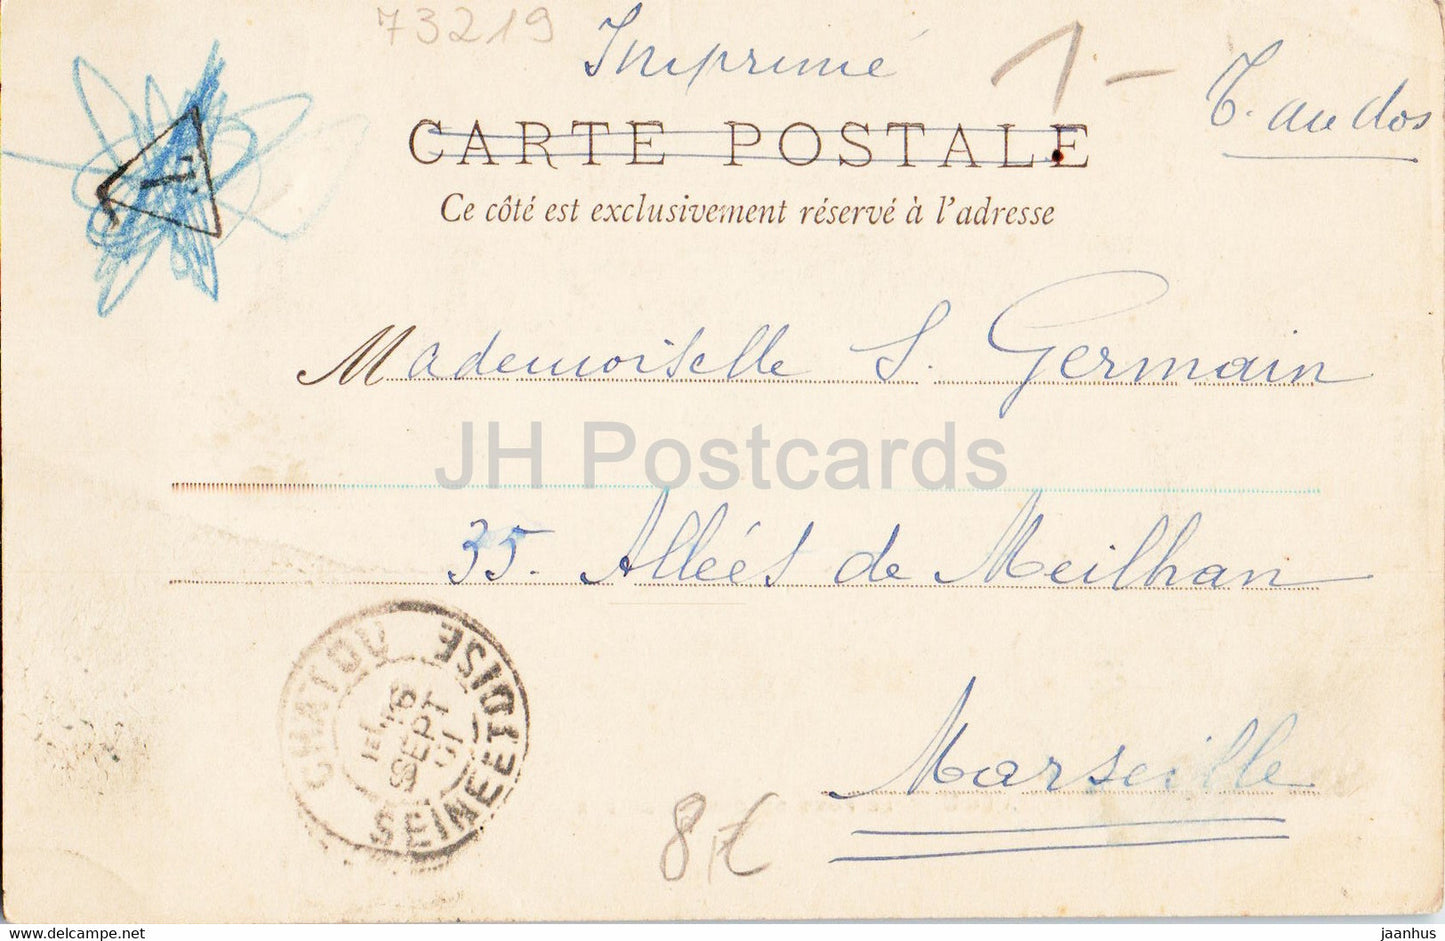 73219
Imprimé
1.-
T. au dos
T
CARTE POSTALE
Ce côté est exclusivement réservé à l'adresse
Mademoiselle S. Germain
JH Postcards
35. Alléés de Meilhan
Marseille
CHATOU SEINE ET OISE
16
SEPT
01
8,€
www.delcampe.net
jaanhus